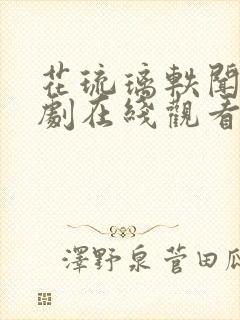 花琉璃軼聞
劇在綫觀看
澤野泉菅田瓜